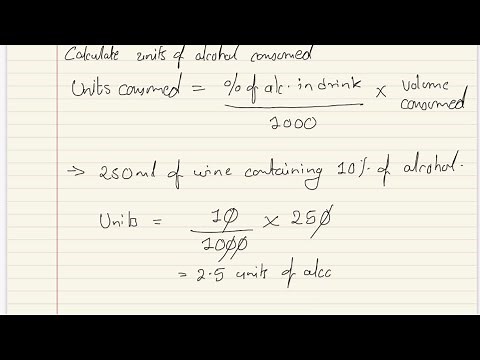 Calculate units of alcohol consumed
Units consumed = % of alc. in drink × volume consumed
1000
→ 250ml of wine containing 10% of alcohol.
Units = 10 × 250
1000
= 2.5 units of alcc